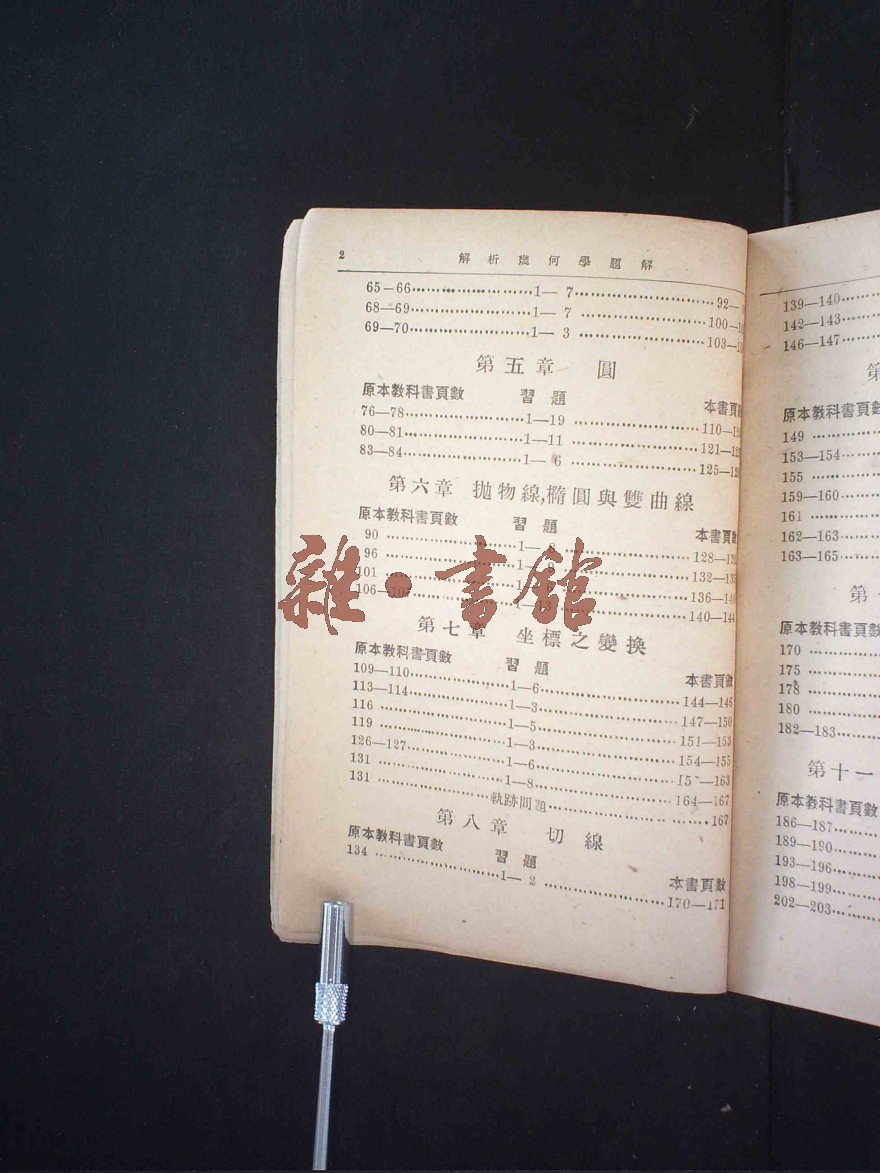 2
解析幾何學題解
65-66……1— 7……92—
68—69……1— 7……100—
69—70……1— 3……103—
第五章 圓
原本教科書頁數 習題 本書頁
76—78……1—19……110—
80—81……1—11……121—
83—84……1— 6……125—
第六章 拋物線,橢圓與雙曲線
原本教科書頁數 習題 本書頁
90……1—……128—
96……132—
101……136—
106—……140—144
雜·書館
第七章 坐標之變換
原本教科書頁數 習題 本書頁數
109—110……1—6……144—146
113—114……1—3……147—150
116……1—5……151—153
119……1—3……154—155
126—127……1—6……—163
131……1—8……164—167
131……軌跡問題……167
第八章 切線
原本教科書頁數 習題 本書頁數
134……1— 2……170—171
139—140……
142—143……
146—147……
第
原本教科書頁數
149……
153—154……
155……
159—160……
161……
162—163……
163—165……
第
原本教科書頁數
170……
175……
178……
180……
182—183……
第十一
原本教科書頁數
186—187……
189—190……
193—196……
198—199……
202—203……